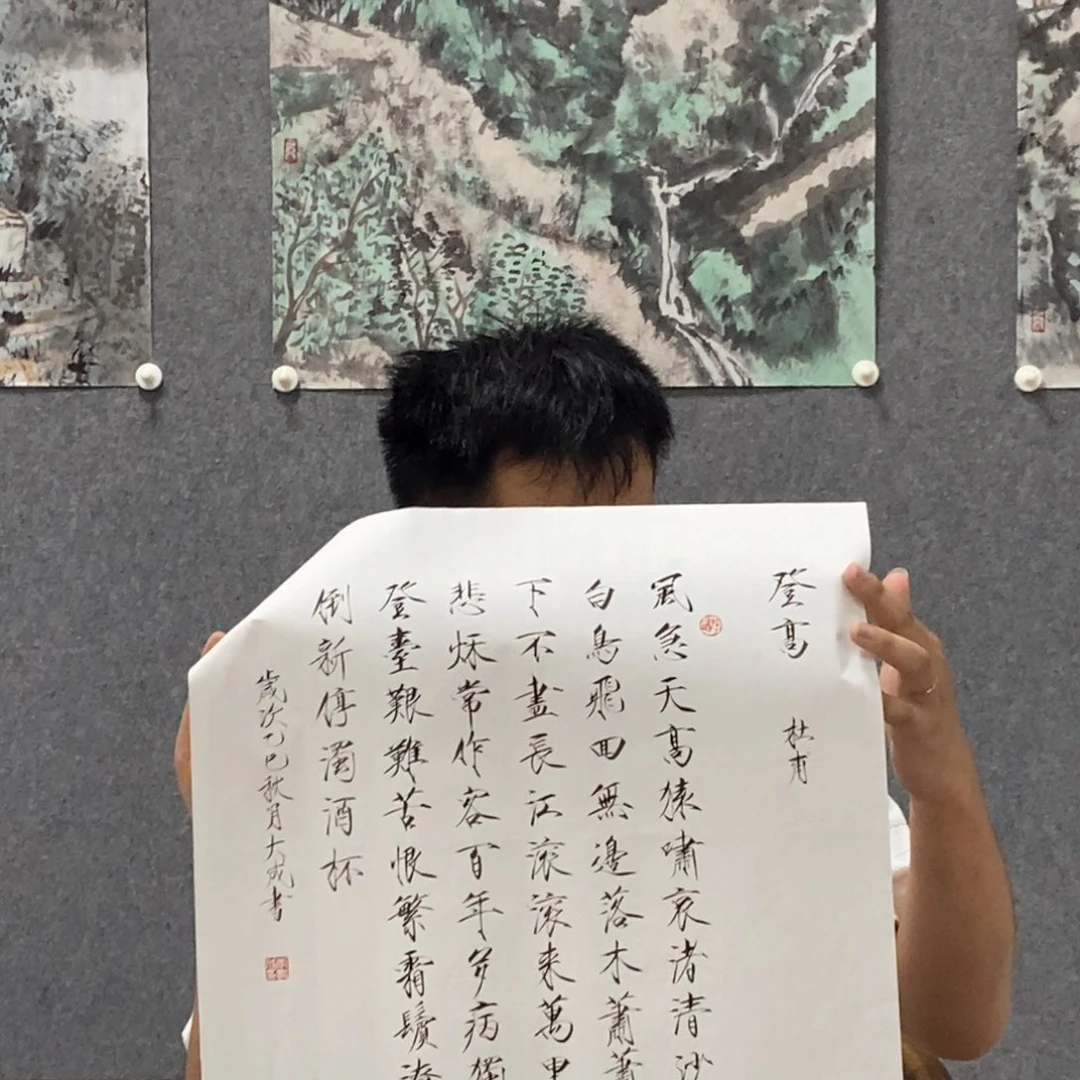 登高 杜甫
風急天高猿嘯哀渚清沙
白鳥飛回無邊落木蕭蕭
下不盡長江滾滾来萬里
悲秋常作客百年多病獨
登臺艱難苦恨繁霜鬢潦
倒新停濁酒杯
歲次乙巳秋月大成書